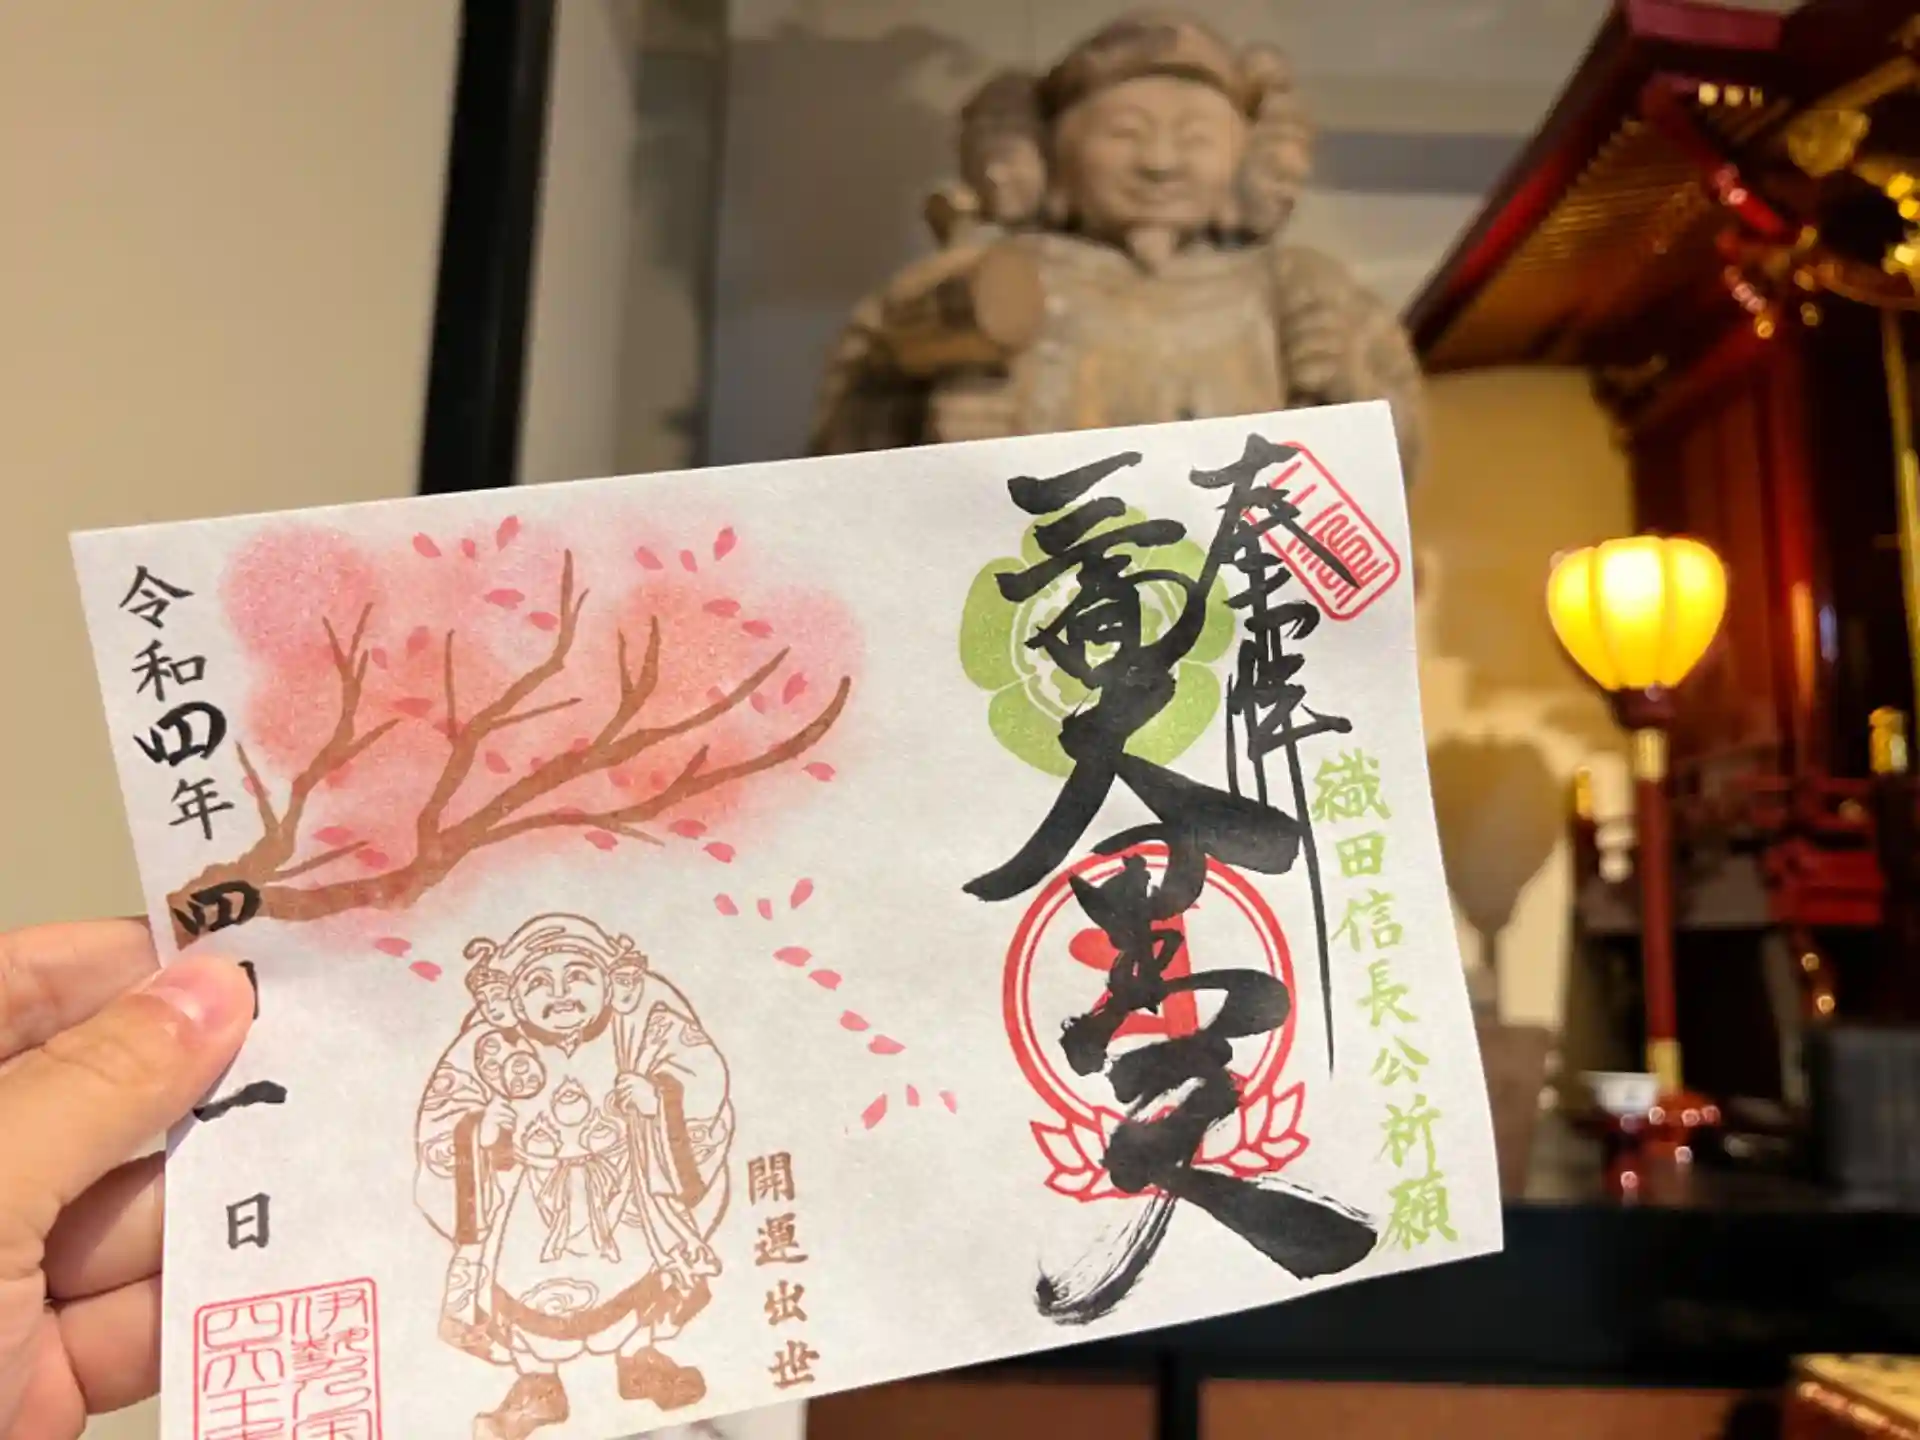 奉拝
織田信長公祈願
三面大黒天
開運出世
令和四年四月一日
伊勢乃国
四天王寺